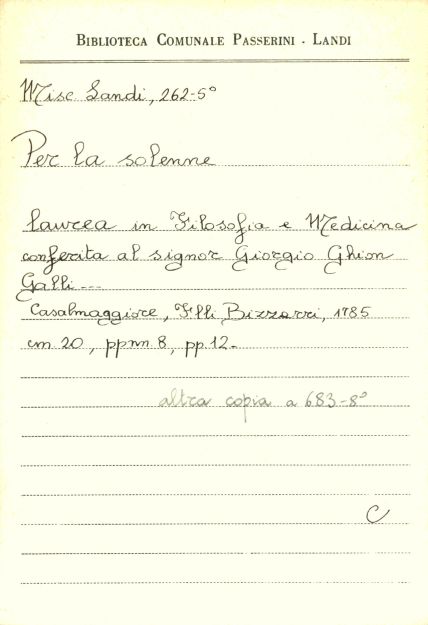 BIBLIOTECA COMUNALE PASSERINI - LANDI
Misc Landi, 262-5°
Per la solenne
laurea in Filosofia e Medicina
conferita al signor Giorgio Ghion
Galli---
Casalmaggiore, F.lli Bizzarri, 1785
cm 20, ppnn 8, pp 12-
altra copia a 683-8°
C